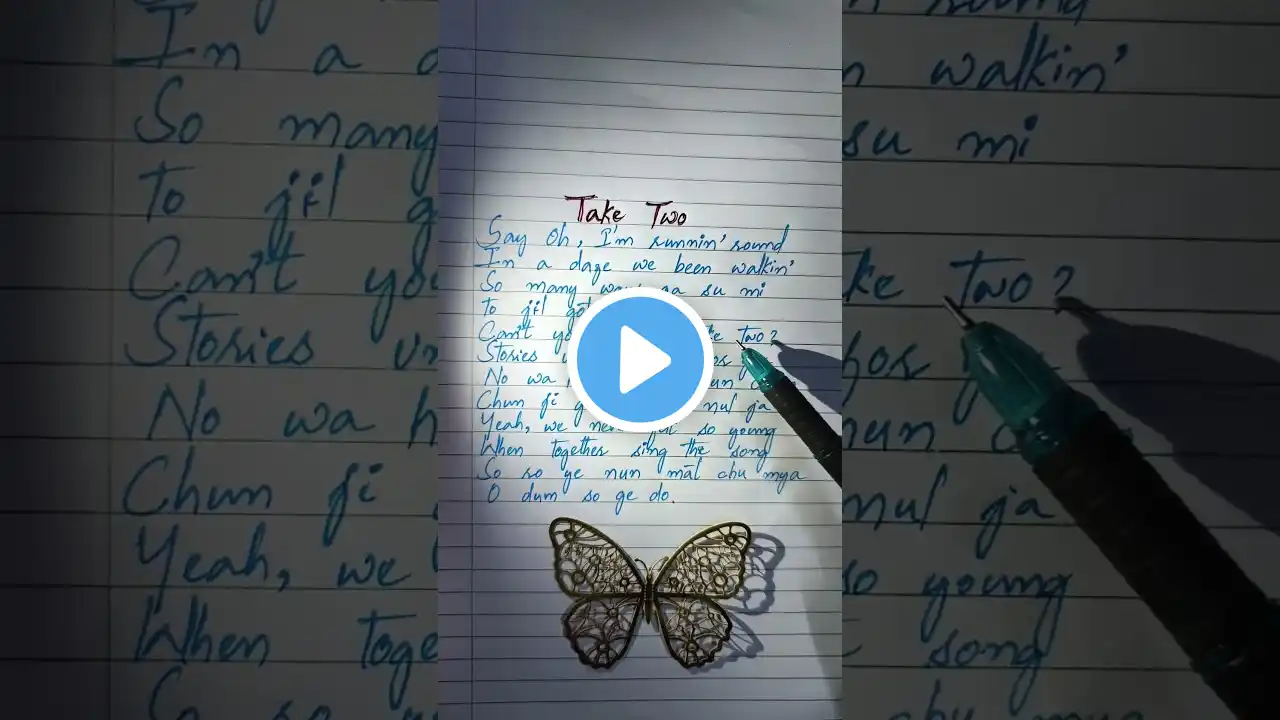 Take Two
Say Oh, I'm runnin' round
In a daze we been walkin'
So many way su mi
To jil go
Can't yo ke Two?
Stories u hos
No wa h un
Chun ji g nul ja
Yeah, we so young
When together sing the song
So so ye nun mal chu mya
O dum so ge do.